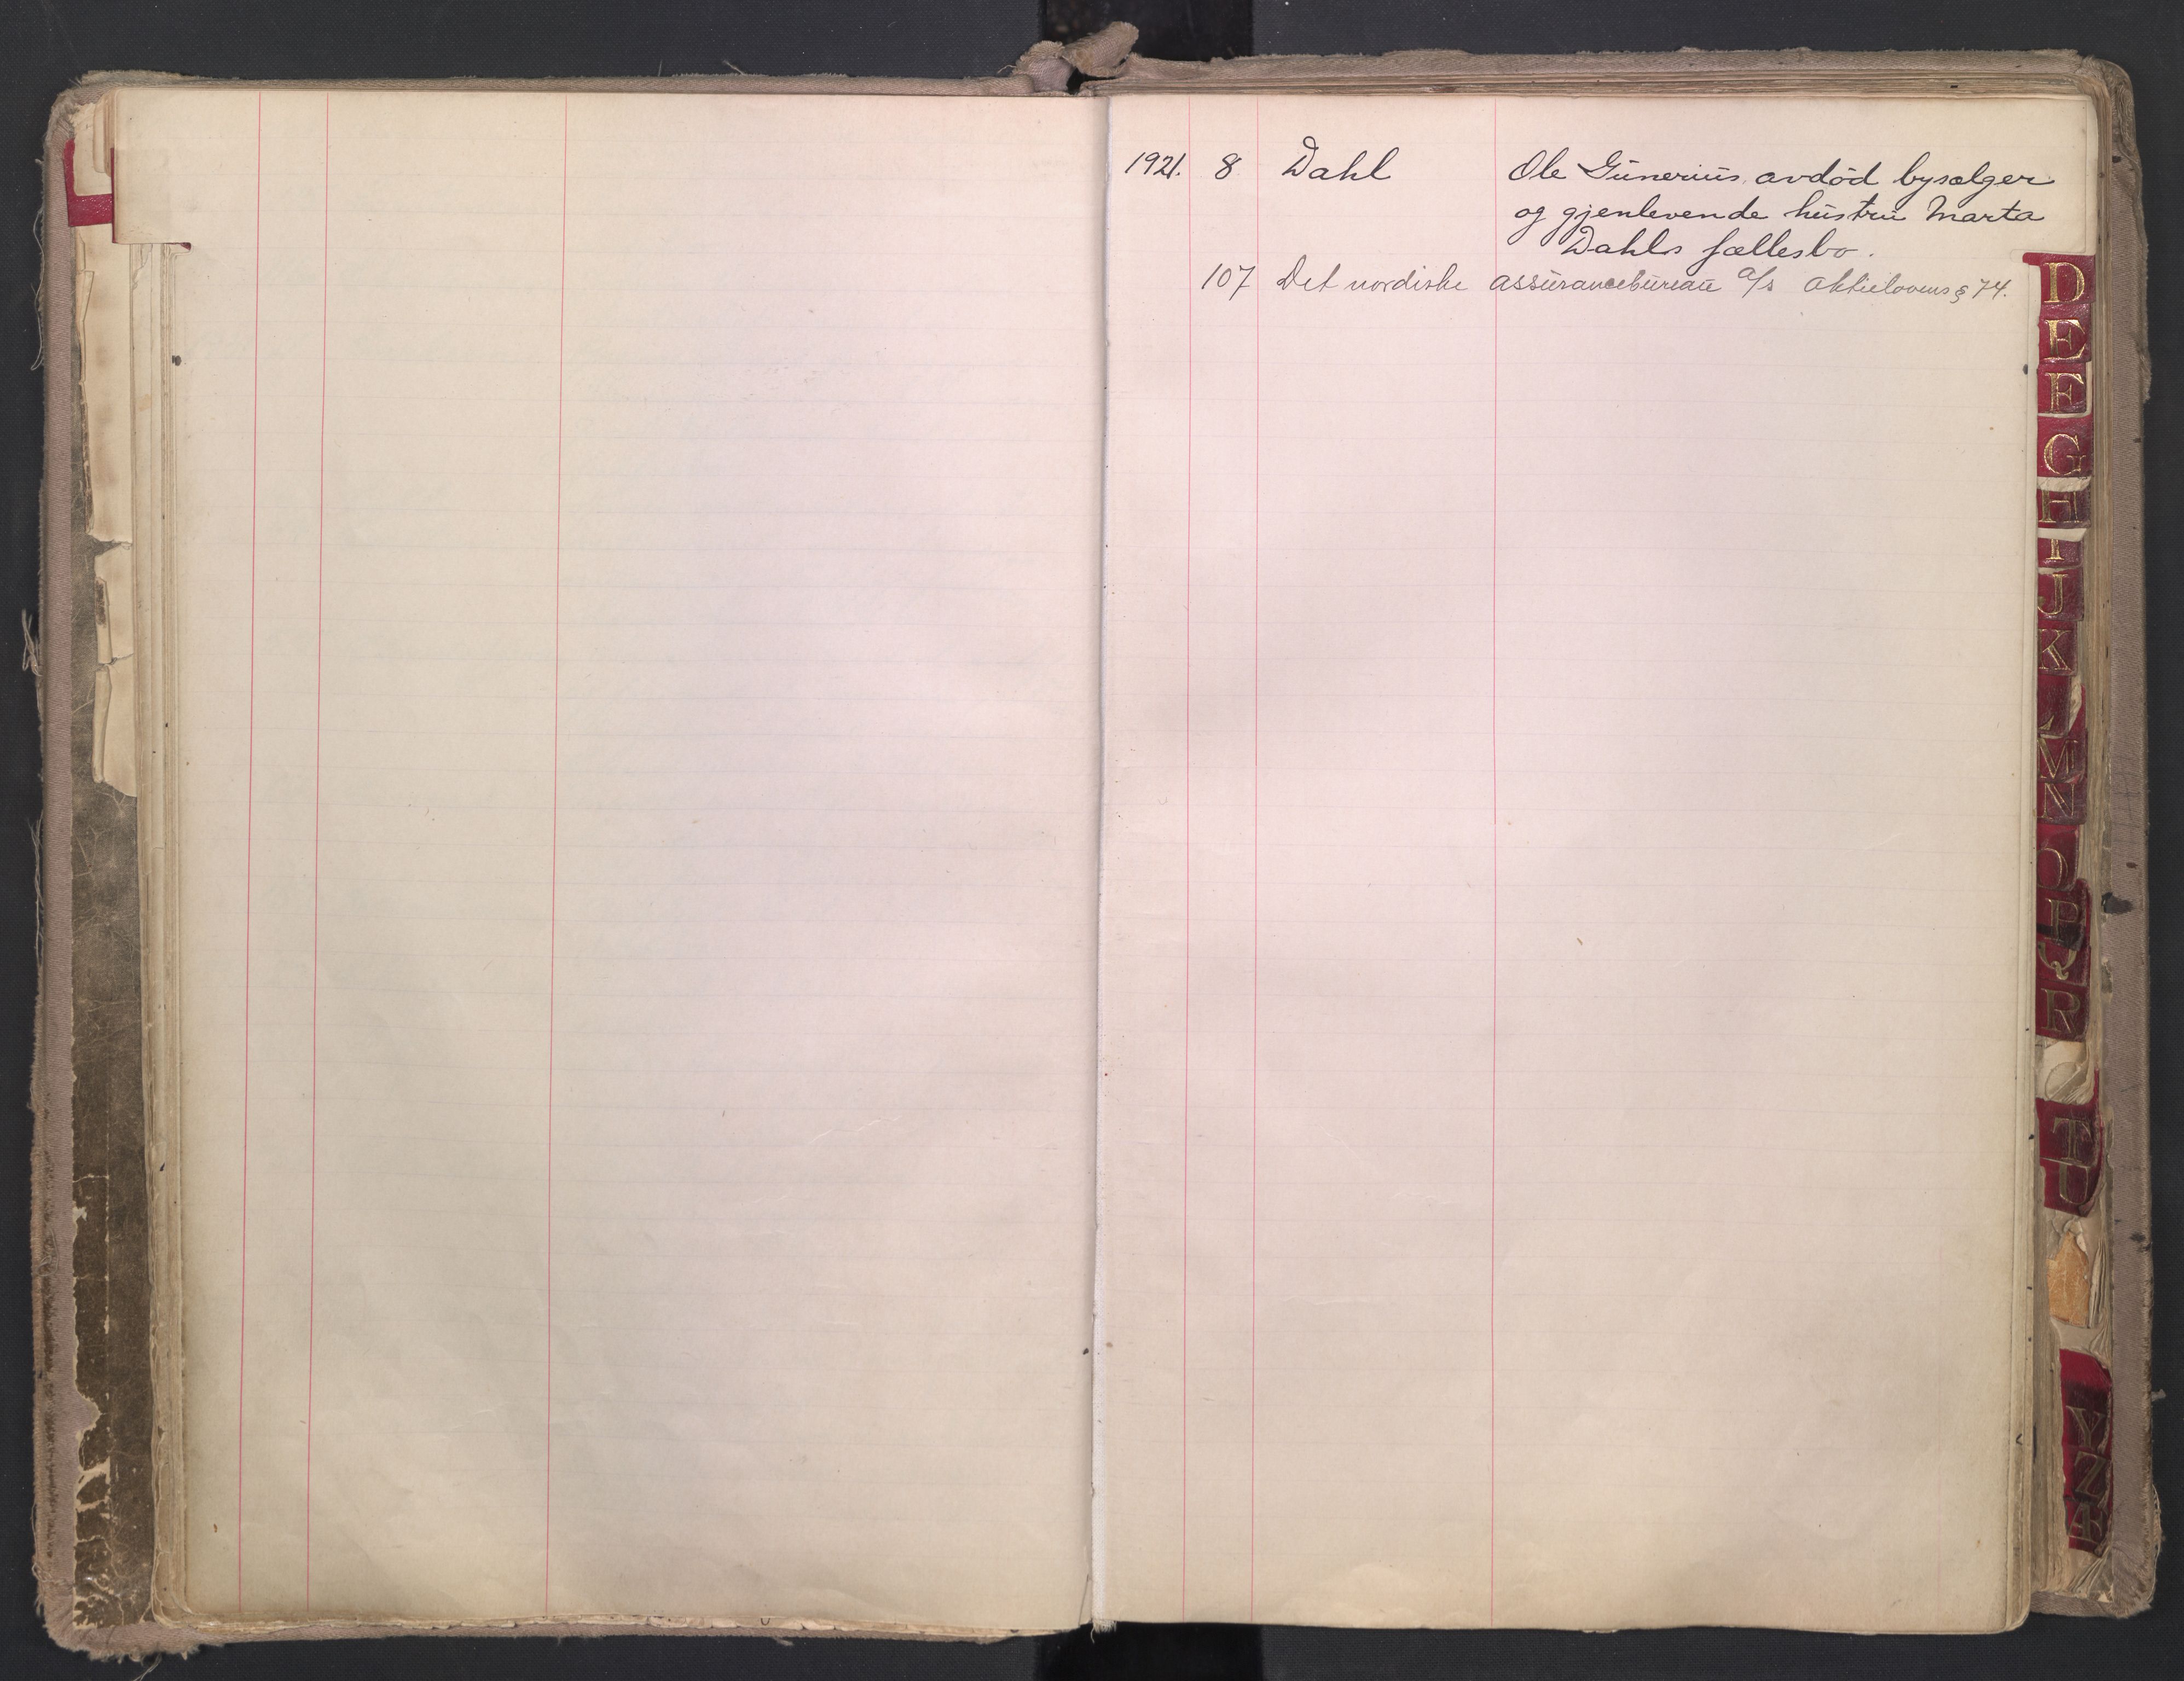 1921. 8 Dahl Ole Gunerius, avdød bysælger
og gjenlevende hustru Marta
Dahls fællesbo.
107 Det nordiske assurancebureau a/s aktielovens § 74.
D
E
F
G
H
I
J
K
L
M
N
O
P
Q
R
T
U
Y
Z